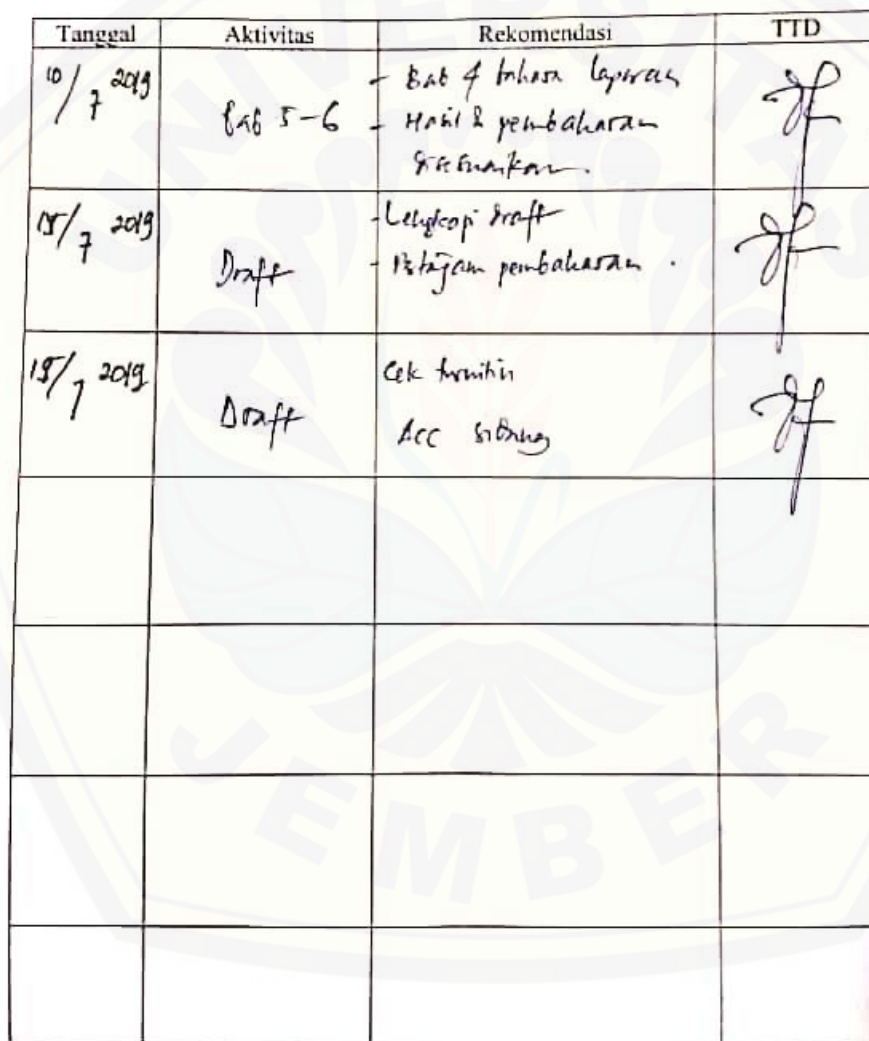 Tanggal Aktivitas Rekomendasi TTD
10/7 2019 Bab 5-6 - Bab 4 bahasa laporan
- Hasil & pembahasan
disesuaikan.
15/7 2019 Draft - Lengkapi draft
- Pertajam pembahasan.
2019 Draft Cek turnitin
Acc sidang
UNIVERSITAS
JEMBER